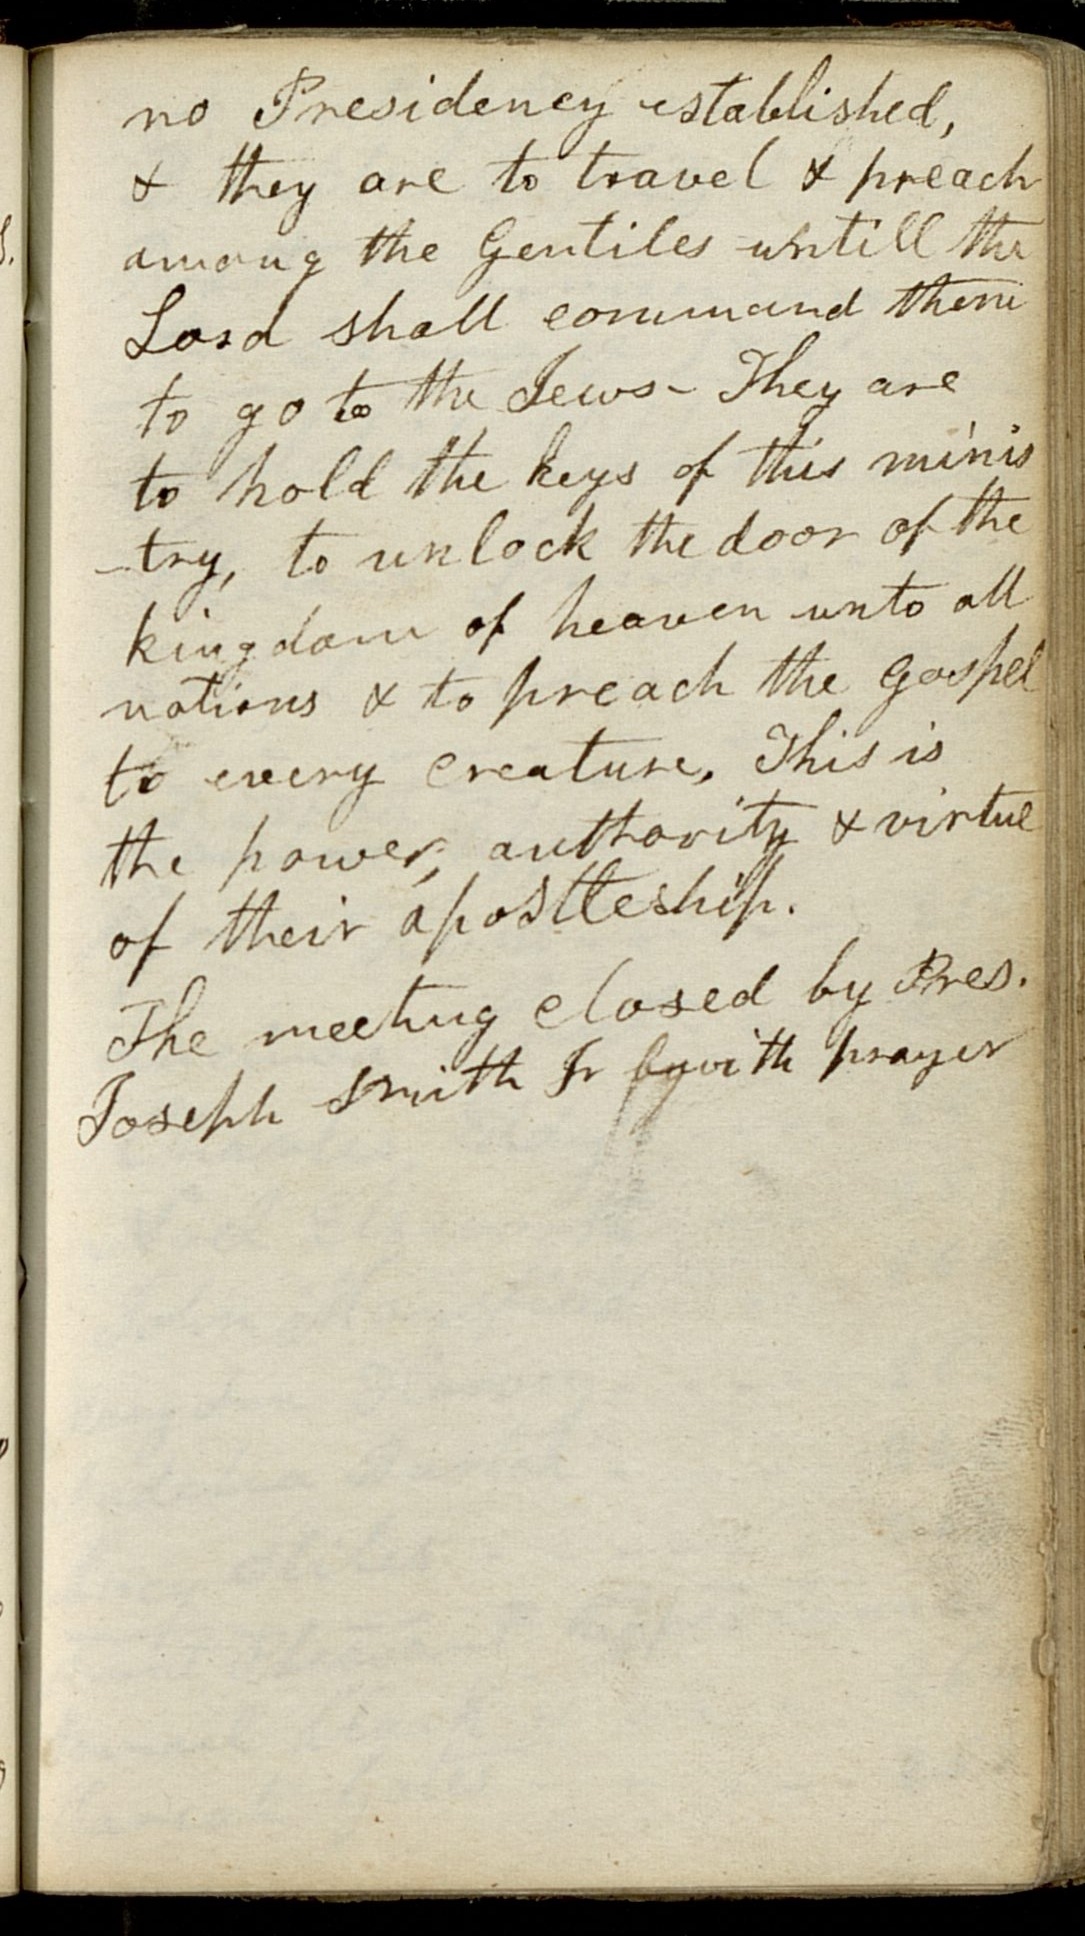 no Presidency established,
& they are to travel & preach
among the Gentiles untill the
Lord shall command them
to go to the Jews - They are
to hold the keys of this minis
-try, to unlock the door of the
kingdom of heaven unto all
nations & to preach the Gospel
to every creature. This is
the power, authority & virtue
of their apostleship.
The meeting closed by Pres.
Joseph Smith Jr by with prayer